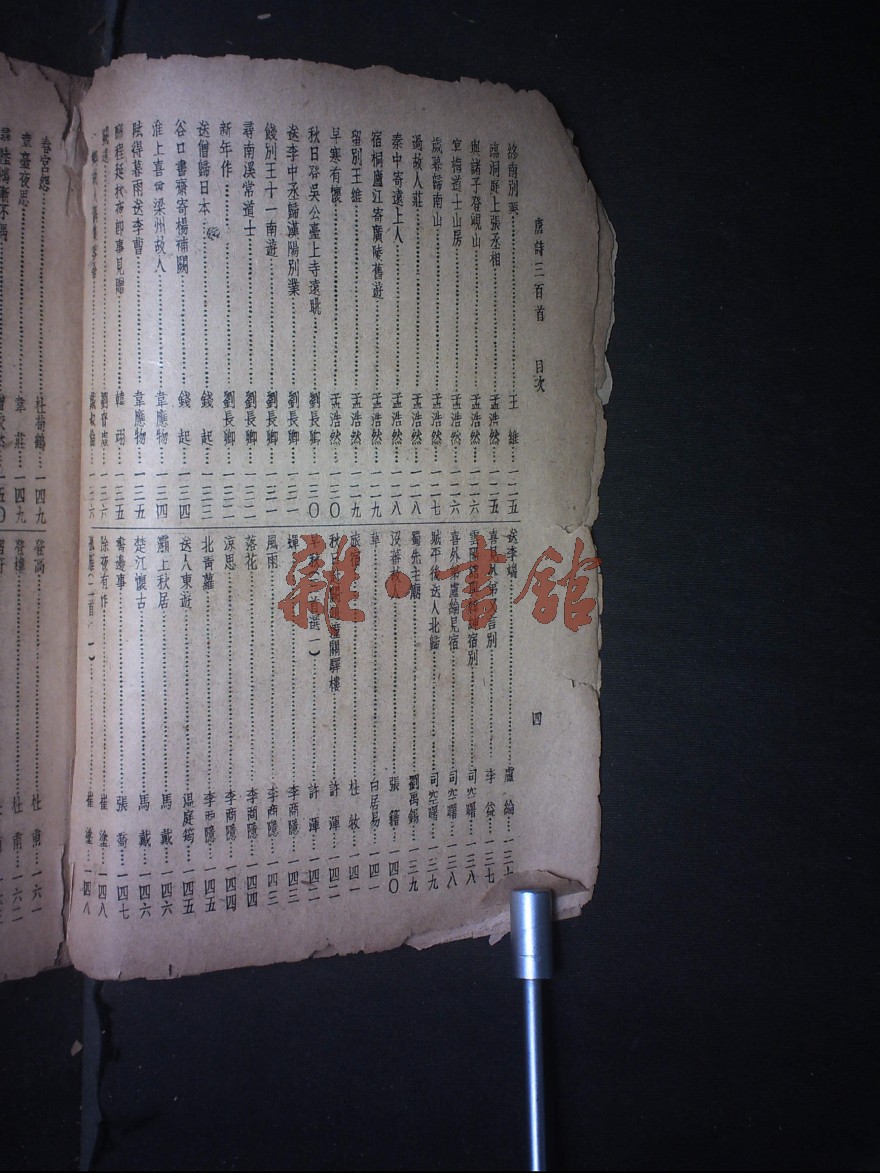 唐詩三百首 目次
四
終南別業 王維 一二五
臨洞庭上張丞相 孟浩然 一二五
與諸子登峴山 孟浩然 一二六
宴梅道士山房 孟浩然 一二六
歲暮歸南山 孟浩然 一二七
過故人莊 孟浩然 一二八
秦中寄遠上人 孟浩然 一二八
宿桐廬江寄廣陵舊遊 孟浩然 一二九
留別王維 孟浩然 一二九
早寒有懷 孟浩然 一三〇
秋日登吳公臺上寺遠眺 劉長卿 一三〇
送李中丞歸漢陽別業 劉長卿 一三一
餞別王十一南遊 劉長卿 一三一
尋南溪常道士 劉長卿 一三二
新年作 劉長卿 一三二
送僧歸日本 錢起 一三三
谷口書齋寄楊補闕 錢起 一三四
淮上喜會梁州故人 韋應物 一三四
賦得暮雨送李曹 韋應物 一三五
酬程延秋夜即事見贈 韓翃 一三五
劉昚虛 一三六
戴叔倫 一三六
送李端 盧綸 一三七
喜見外弟又言別 李益 一三七
雲陽館與韓紳宿別 司空曙 一三八
喜外弟盧綸見宿 司空曙 一三八
賊平後送人北歸 司空曙 一三九
蜀先主廟 劉禹錫 一三九
沒蕃故人 張籍 一四〇
草 白居易 一四一
旅宿 杜牧 一四一
秋日 關驛樓 許渾 一四二
早秋 首選一） 許渾 一四二
蟬 李商隱 一四三
風雨 李商隱 一四三
落花 李商隱 一四四
涼思 李商隱 一四四
北青蘿 李商隱 一四五
送人東遊 溫庭筠 一四五
灞上秋居 馬戴 一四六
楚江懷古 馬戴 一四六
書邊事 張喬 一四七
除夜有作 崔塗 一四八
孤雁（二首 一） 崔塗 一四八
春宮怨 杜荀鶴 一四九
章臺夜思 韋莊 一四九
尋陸鴻漸不遇 僧皎然 一五〇
登高 杜甫 一六一
登樓 杜甫 一六二
雜·書館